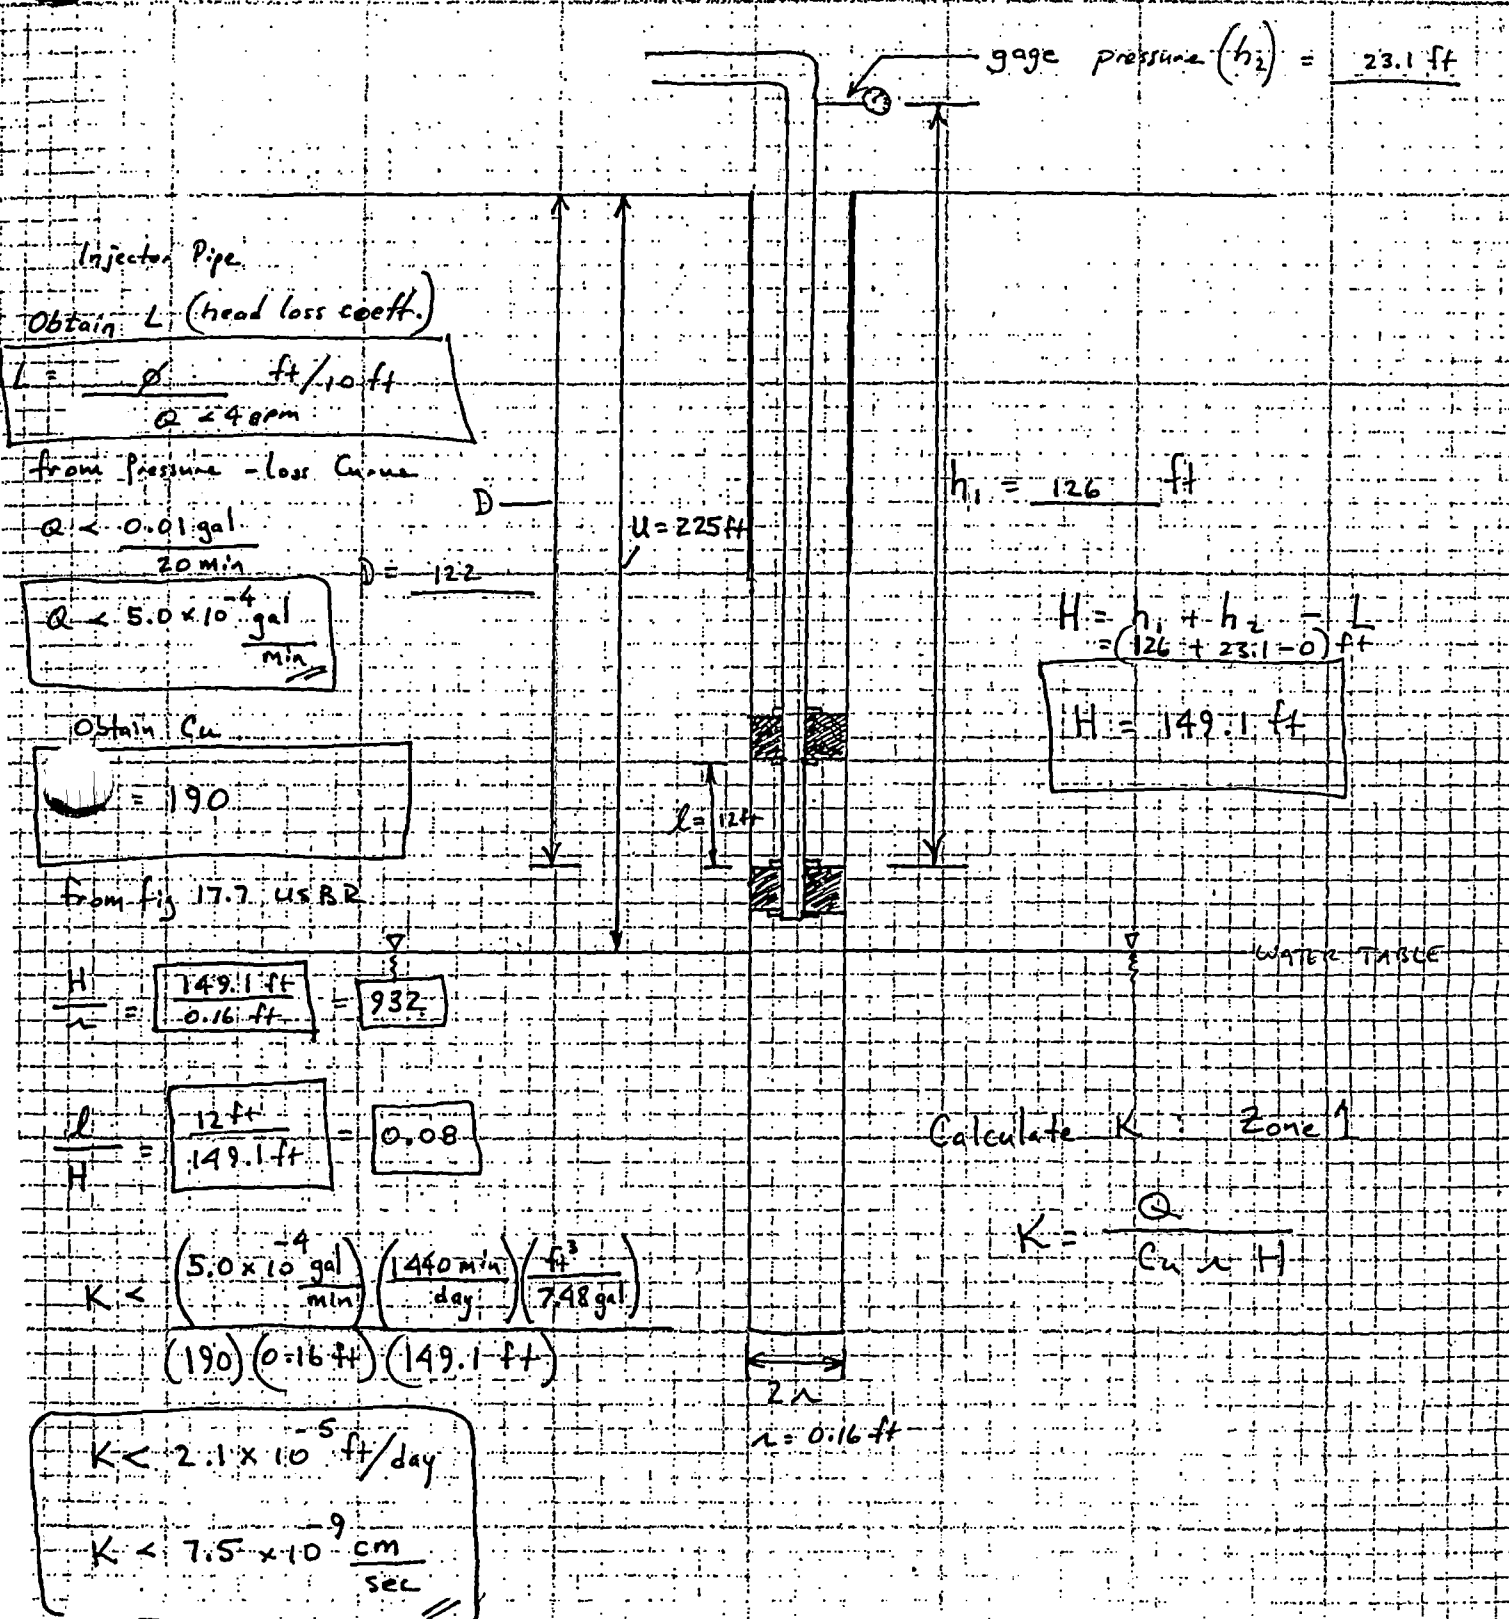 gage pressure (h₂) = 23.1 ft
Injector Pipe
Obtain L (head loss coeff.)
L = ∅ ft/10 ft
Q < 4 gpm
from Pressure-loss Curve
Q < 0.01 gal
20 min
Q < 5.0 × 10⁻⁴ gal
min
D
D = 122
U = 225 ft
h₁ = 126 ft
H = h₁ + h₂ - L
= (126 + 23.1 - 0) ft
H = 149.1 ft
Obtain Cu
= 190
from fig 17.7 USBR
l = 12 ft
WATER TABLE
H/r = 149.1 ft / 0.16 ft = 932
l/H = 12 ft / 149.1 ft = 0.08
Calculate K : Zone 1
K = Q / Cu r H
K < (5.0 × 10⁻⁴ gal/min) (1440 min/day) (ft³/7.48 gal)
(190) (0.16 ft) (149.1 ft)
2r
r = 0.16 ft
K < 2.1 × 10⁻⁵ ft/day
K < 7.5 × 10⁻⁹ cm
sec